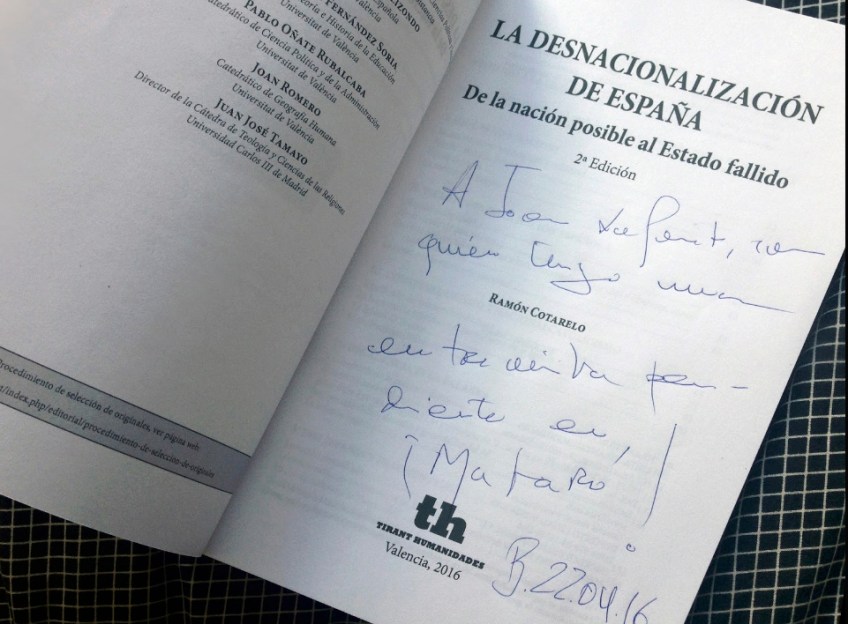 LIZONDO
FERNÁNDEZ SORIA
Teoría e Historia de la Educación
Universitat de València
PABLO OÑATE RUBALCABA
Catedrático de Ciencia Política y de la Administración
Universitat de València
JOAN ROMERO
Catedrático de Geografía Humana
Universitat de València
JUAN JOSÉ TAMAYO
Director de la Cátedra de Teología y Ciencias de las Religiones
Universidad Carlos III de Madrid
Procedimiento de selección de originales, ver página web:
/index.php/editorial/procedimiento-de-seleccion-de-originales
LA DESNACIONALIZACIÓN
DE ESPAÑA
De la nación posible al Estado fallido
2ª Edición
A Joan, con
quien tengo una
RAMÓN COTARELO
entrevista pen-
diente en,
¡Mataró!
th
TIRANT HUMANIDADES
Valencia, 2016
B. 22.04.16